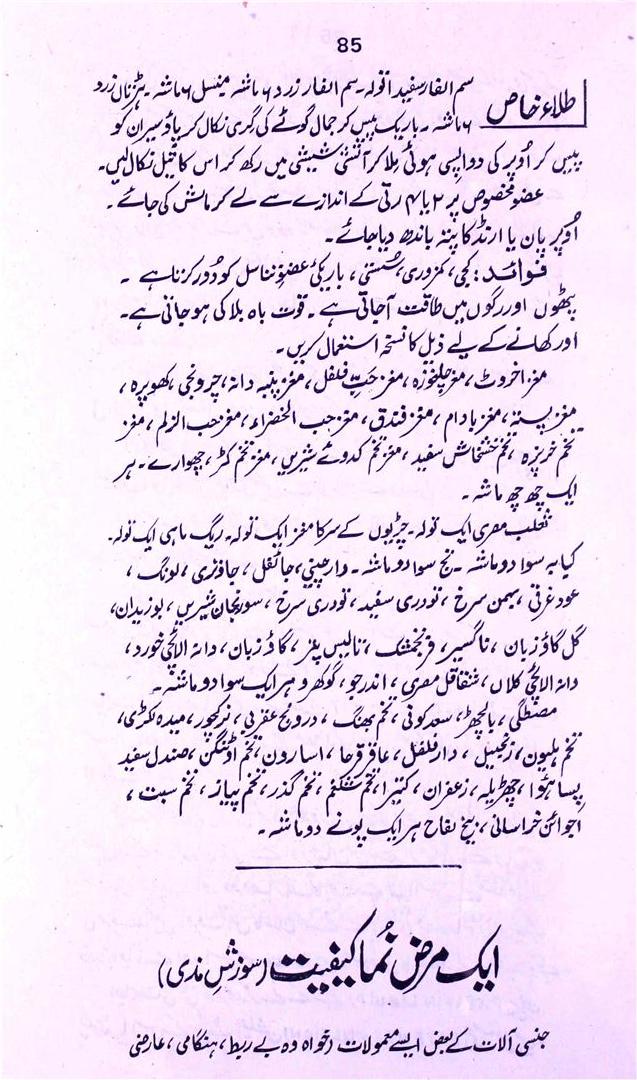 85
طلاء خاص
سم الفار سفید اتولہ۔ سم الفار زرد ۶ ماشہ منسل ۶ ماشہ۔ ہڑتال زرد
۶ ماشہ۔ باریک پیس کر جمال گوٹے کی گری نکال کر پاؤ سیران کو
پیس کر اُوپر کی دوا پسی ہوئی ملا کر آتشی شیشی میں رکھ کر اس کا تیل نکال لیں۔
عضو مخصوص پر ۲ یا ۴ رتی کے اندازے سے لے کر مالش کی جائے۔
اُوپر پان یا ارنڈ کا پتہ باندھ دیا جائے۔
فوائد: کجی، کمزوری، سُستی، باریکئ عضو تناسل کو دُور کرتا ہے۔
پٹھوں اور رگوں میں طاقت آ جاتی ہے۔ قوت باہ بلا کی ہو جاتی ہے۔
اور کھانے کے لیے ذیل کا نسخہ استعمال کریں۔
مغز اخروٹ، مغز چلغوزہ، مغز حبّ فلفل، مغز پنبہ دانہ، چرونجی، کھوپرہ،
مغز پستہ، مغز بادام، مغز فندق، مغز حب الخضراء، مغز حب الزلم، مغز
تخم خرپزہ، تخم خشخاش سفید، مغز تخم کدوئے شیریں، مغز تخم کڑ، چھوارے۔ ہر
ایک چھ چھ ماشہ۔
ثعلب مصری ایک تولہ۔ چڑیوں کے سر کا مغز ایک تولہ۔ ریگ ماہی ایک تولہ۔
کبابہ سوا دو ماشہ۔ تج سوا دو ماشہ۔ دار چینی، جائفل، جاوتری، لونگ،
عود غرقی، بہمن سرخ، تودری سفید، تودری سرخ، سورنجان شیریں، بوزیدان،
گل گاؤ زبان، ناگسیر، فرنجمشک، تالیس پتر، گاؤ زبان، دانہ الائچی خورد،
دانہ الائچی کلاں، شقاقل مصری، اندر جو، گوکھرو ہر ایک سوا دو ماشہ۔
مصطگی، بالچھڑ، سعد کوفی، تخم بھنگ، درونج عقربی، نرکچور، میدہ لکڑی،
تخم ہلیون، زنجبیل، دار فلفل، عاقرقرحا، اسارون، تخم اوٹنگن، صندل سفید
پسا ہوا، چھڑیلہ، زعفران، کتیرا، تخم شلغم، تخم گذر، تخم پیاز، تخم سبت،
اجوائن خراسانی، بیخ لفاح ہر ایک پونے دو ماشہ۔
ایک مرض نُما کیفیت (سوزشِ مذی)
جنسی آلات کے بعض ایسے معمولات (خواہ وہ بے ربط، ہنگامی، عارضی